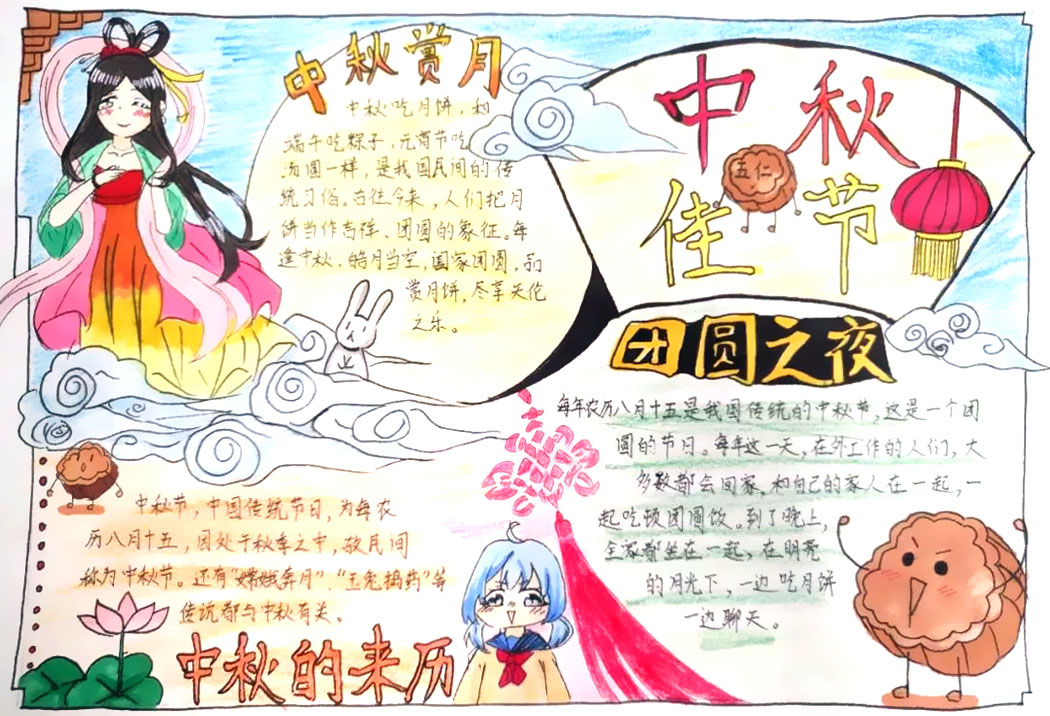 中秋赏月
中秋吃月饼，和
端午吃粽子，元宵节吃
汤圆一样，是我国民间的传
统习俗。古往今来，人们把月
饼当作吉祥、团圆的象征。每
逢中秋，皓月当空，阖家团圆，品
赏月饼，尽享天伦
之乐。
中秋
五仁
佳节
团圆之夜
每年农历八月十五是我国传统的中秋节，这是一个团
圆的节日。每年这一天，在外工作的人们，大
多数都会回家，和自己的家人在一起，一
起吃顿团圆饭。到了晚上，
全家都坐在一起，在明亮
的月光下，一边吃月饼
一边聊天。
中秋节，中国传统节日，为每农
历八月十五，因处于秋季之中，故民间
称为中秋节。还有“嫦娥奔月”、“玉兔捣药”等
传说都与中秋有关。
中秋的来历